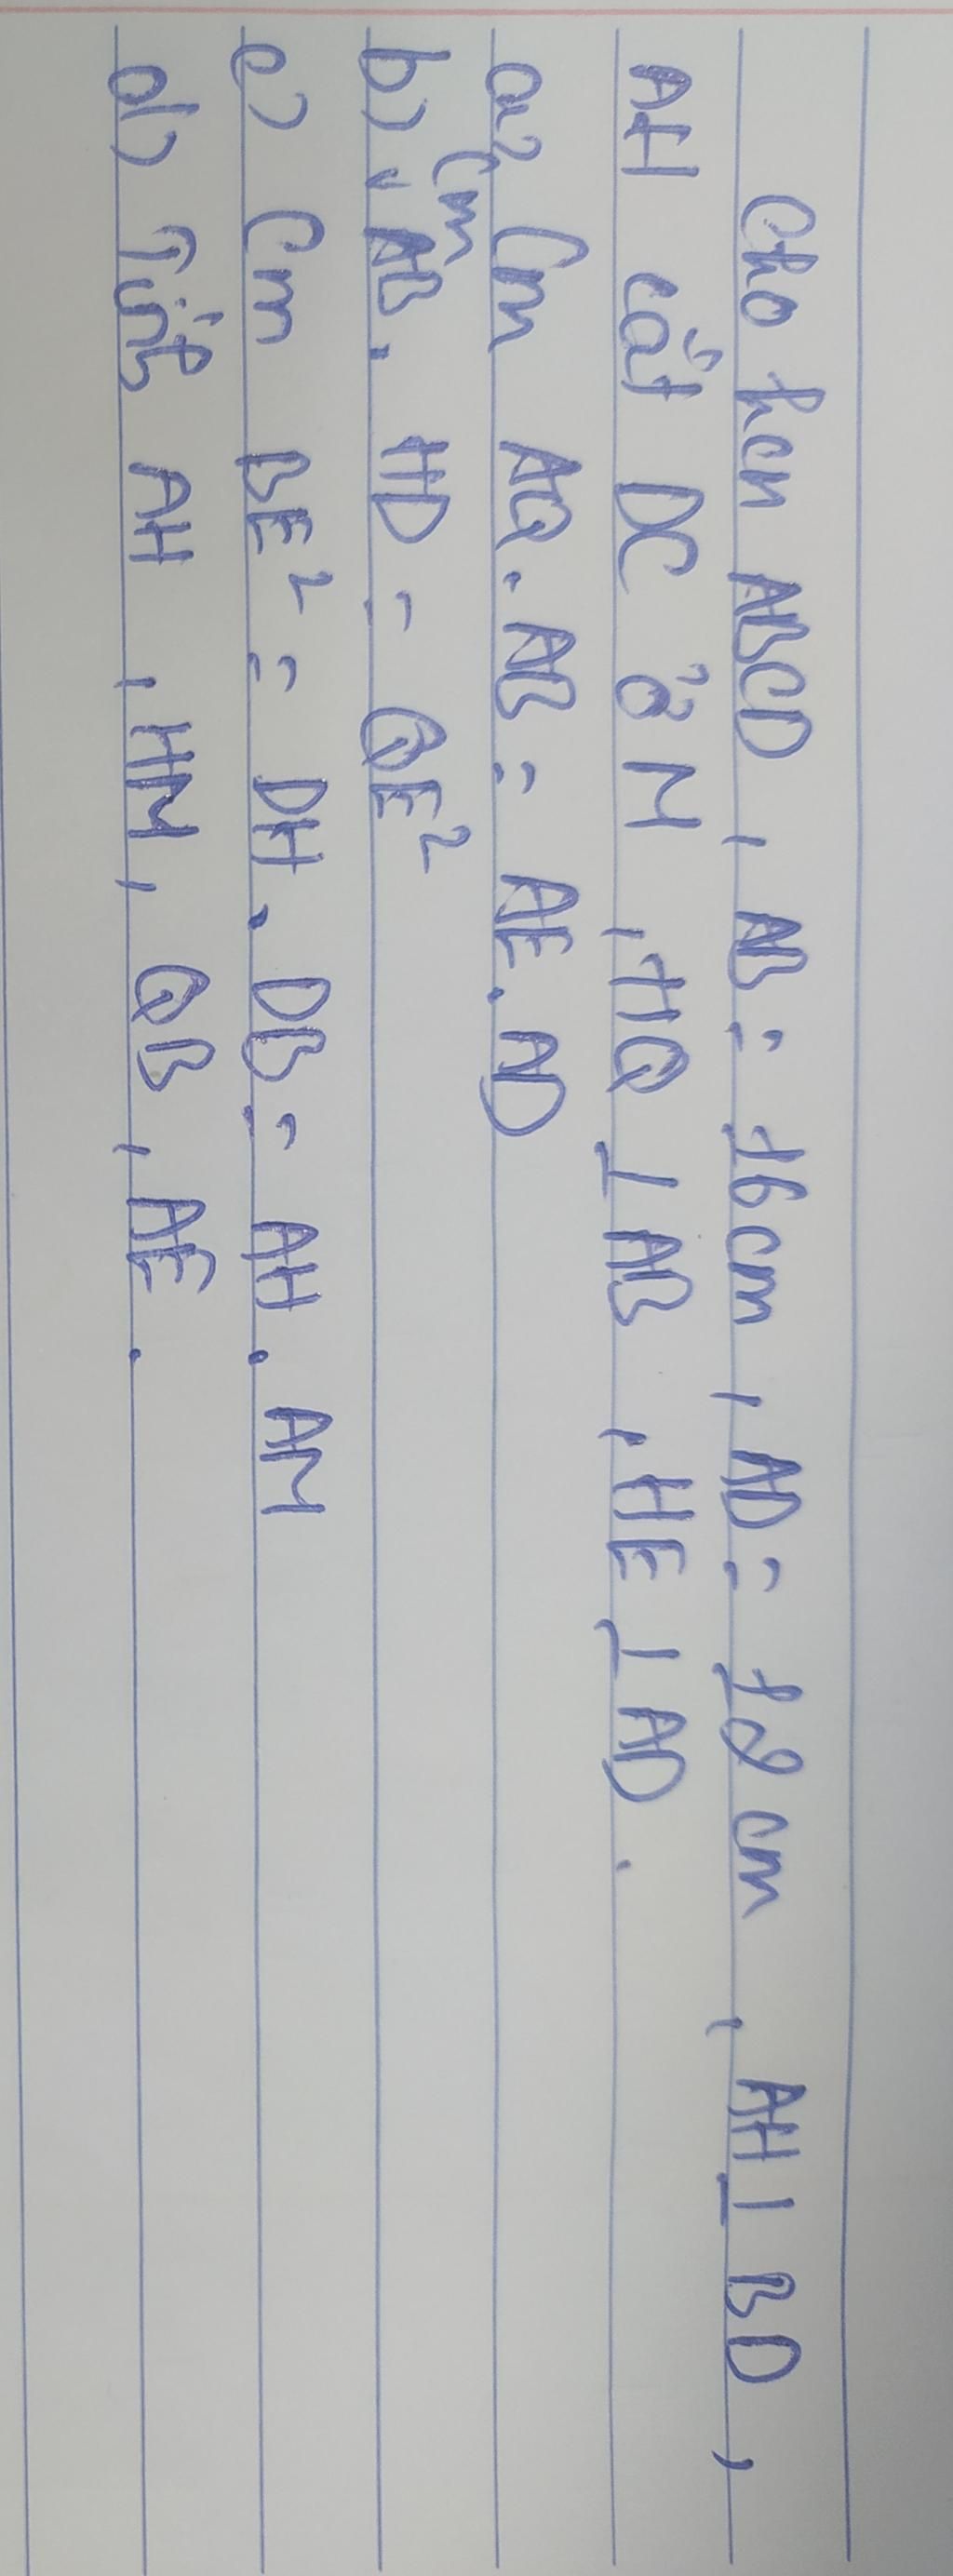 Cho hcn ABCD, AB = 16cm, AD = 12 cm, AH ⊥ BD,
AH cắt DC ở M, HQ ⊥ AB, HE ⊥ AD.
a) Cm AQ.AB = AE.AD
b) Cm AB. HD = QE²
c) Cm BE² = DH. DB = AH. AM
d) Tính AH, HM, QB, AE.